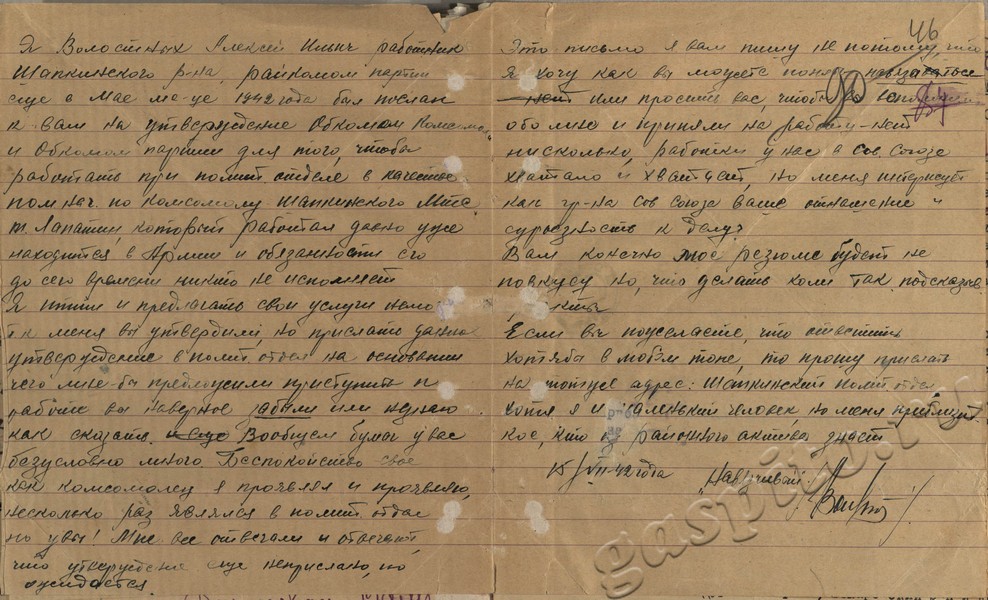 Я Волостных Алексей Ильич работник
Шапкинского р-на, райкомом партии
еще в Мае ме-це 1942 года был послан
к вам на утверждение Обкомом Комсомо
и Обкомом партии для того, чтобы
работать при полит отделе в качестве
пом нач. по комсомолу Шапкинского Мтс.
т. Лапатин, который работал давно уже
находится в Армии и обязанности его
до сего времени никто не исполняет
Я итти и предлагать свои услуги немо
т.к меня вы утвердили, но прислать данно
утверждение в полит. отдел на основании
чего мне-бы предложили приступить к
работе вы наверное забыли или незнаю
как сказать. Вообщем бумаг у вас
безусловно много. Беспокойство свое
как комсомолец я проявлял и проявляю,
несколько раз являлся в полит отдел
но увы! Мне все отвечали и отвечают,
что утверждение еще неприслано, но
ожидается.
46
Это письмо я вам пишу не потому, что
Я хочу как вы можете понять навязаться
или просить вас, чтобы вы
обо мне и приняли на работу-нет
нисколько, работки у нас в Сов. Союзе
хватало и хватает, но меня интересует
как гр-на Сов Союза ваше отношение и
сурьезность к делу?
Вам конечно мое резюме будет не
повкусу но, что делать коли так подсказыв
Если вы пожелаете, что ответить
хотябы в моем тоне, то прошу прислать
на тотже адрес: Шапкинский полит отдел
Хотя, я и маленький человек, но меня
кое, кто из районного актива знает
15/VII-42 года
"Навязчивый".
gaspito.ru